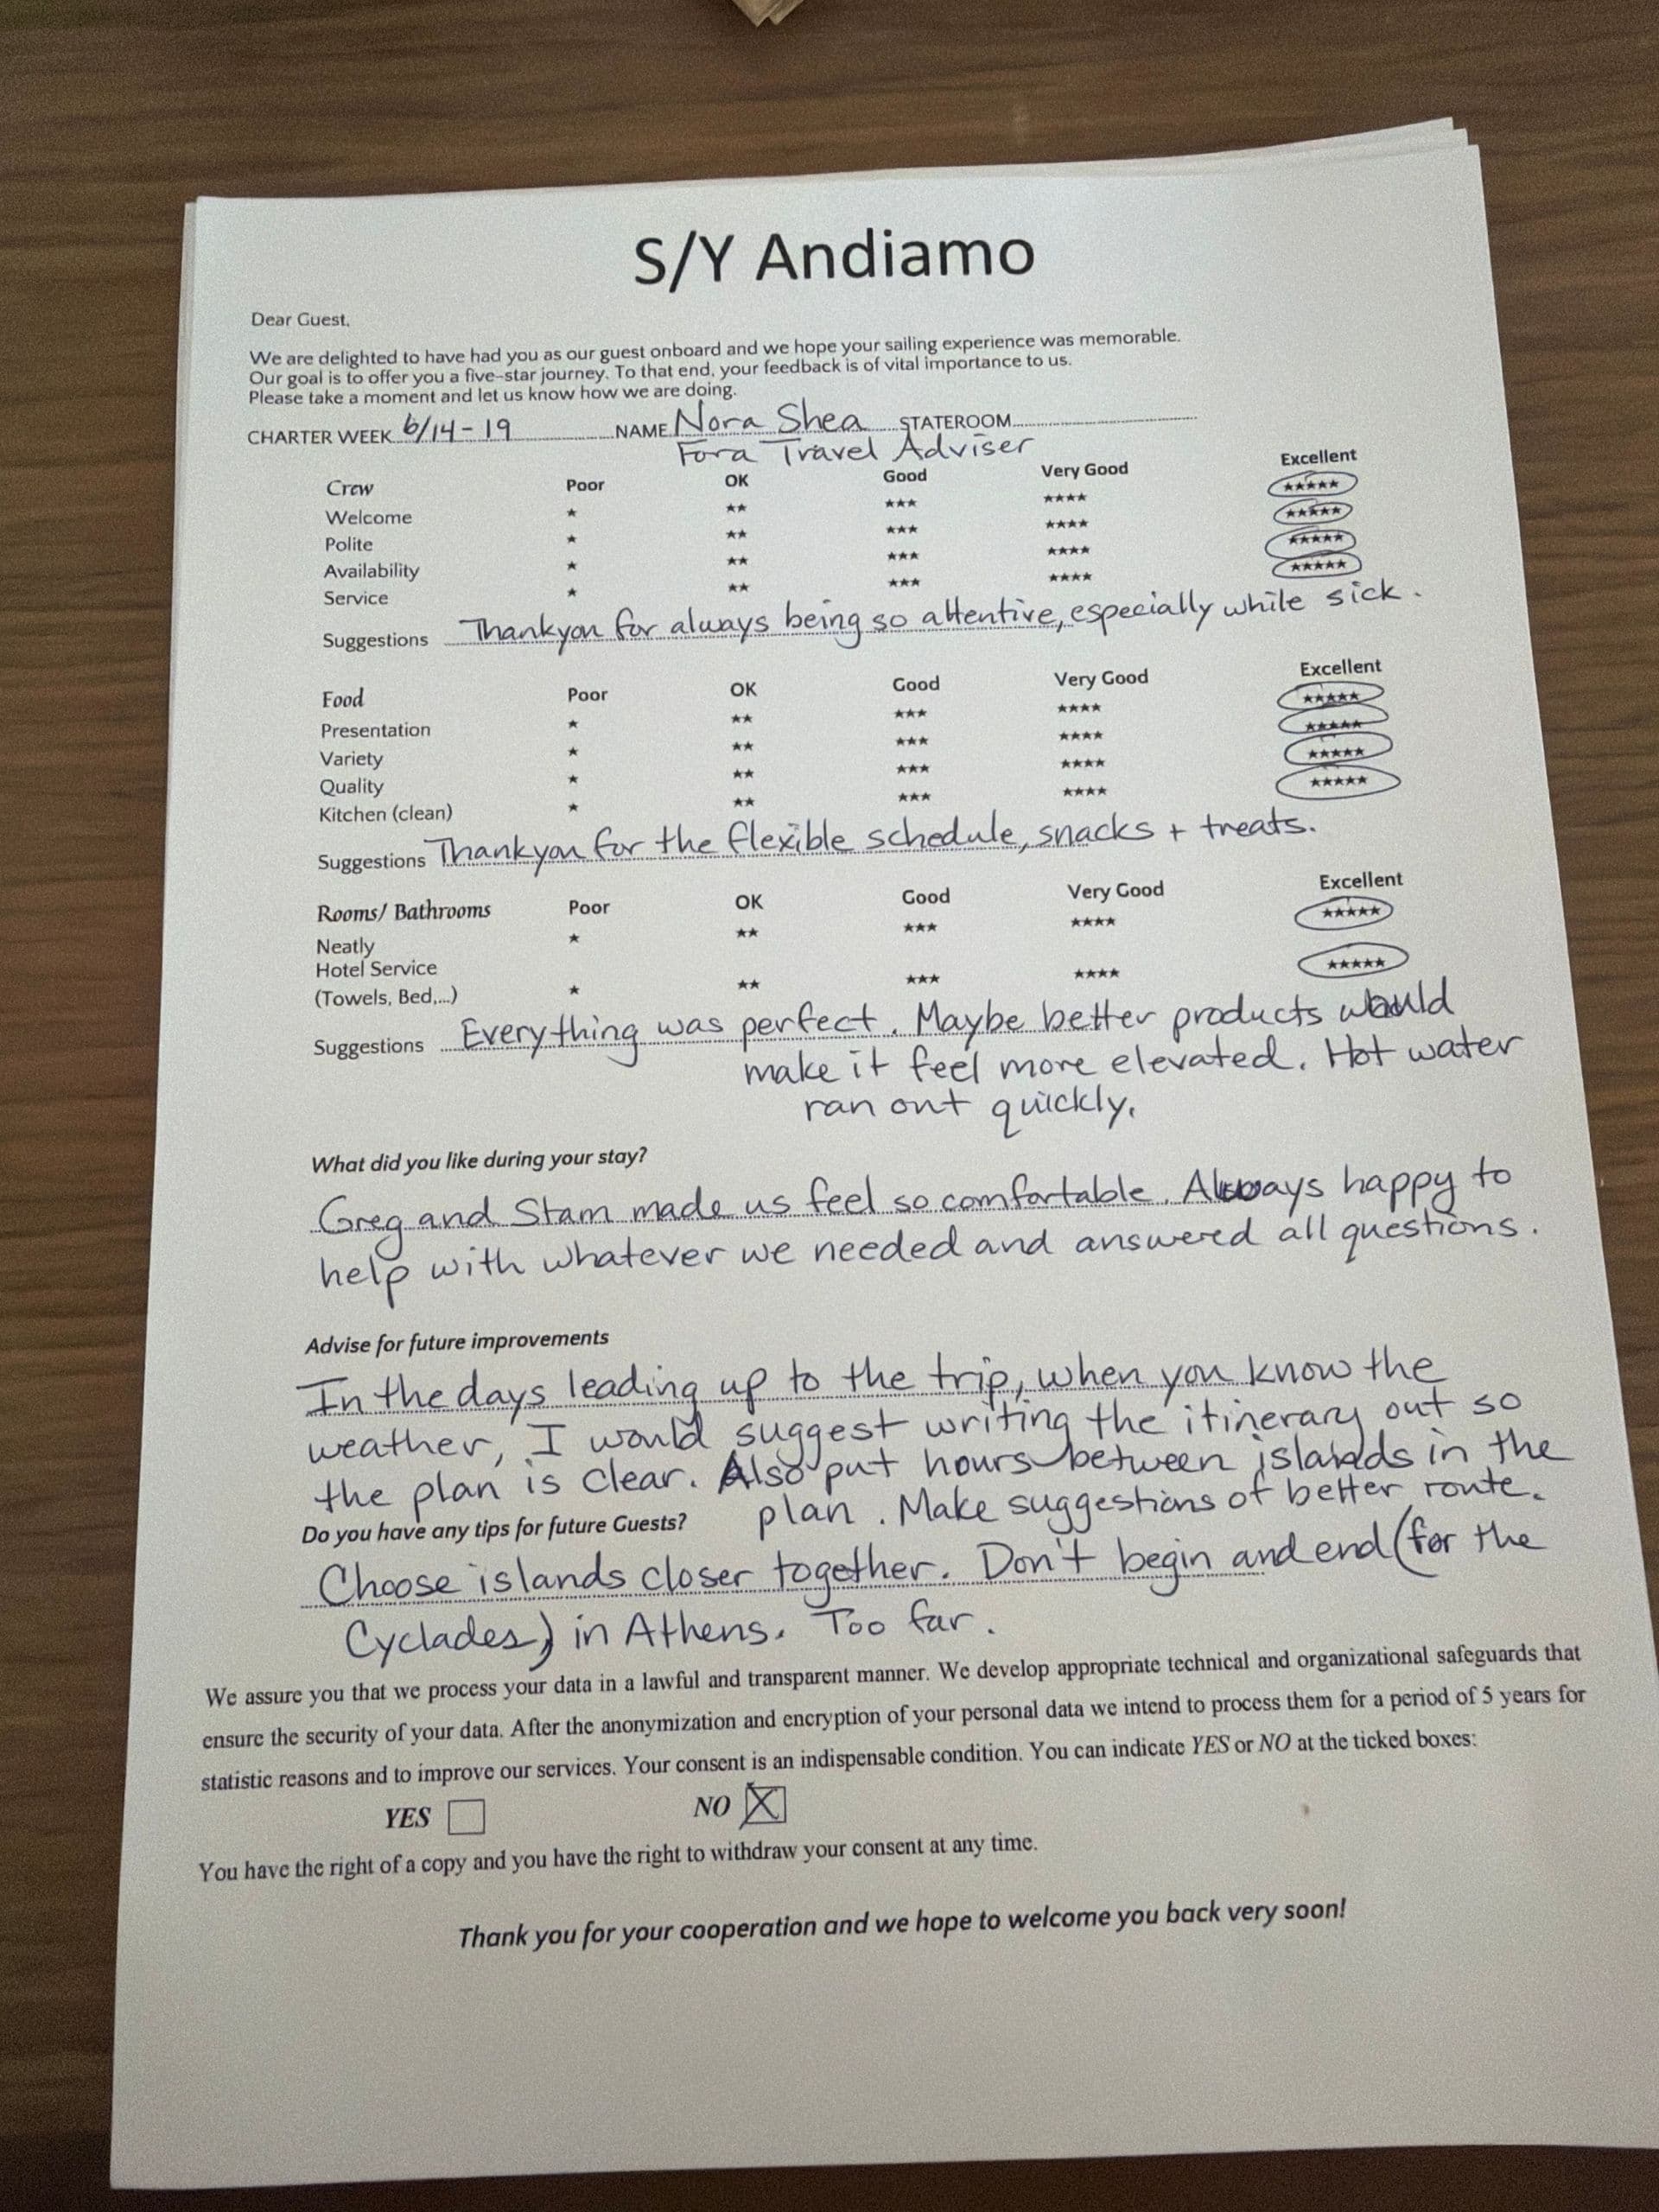 S/Y Andiamo
Dear Guest,
We are delighted to have had you as our guest onboard and we hope your sailing experience was memorable.
Our goal is to offer you a five-star journey. To that end, your feedback is of vital importance to us.
Please take a moment and let us know how we are doing.
CHARTER WEEK 6/14-19 NAME Nora Shea STATEROOM
Fora Travel Adviser
Crew Poor OK Good Very Good Excellent
Welcome ★ ★★ ★★★ ★★★★ ★★★★★
Polite ★ ★★ ★★★ ★★★★ ★★★★★
Availability ★ ★★ ★★★ ★★★★ ★★★★★
Service ★ ★★ ★★★ ★★★★ ★★★★★
Suggestions Thankyou for always being so attentive, especially while sick.
Food Poor OK Good Very Good Excellent
Presentation ★ ★★ ★★★ ★★★★ ★★★★★
Variety ★ ★★ ★★★ ★★★★ ★★★★★
Quality ★ ★★ ★★★ ★★★★ ★★★★★
Kitchen (clean) ★ ★★ ★★★ ★★★★ ★★★★★
Suggestions Thankyou for the flexible schedule, snacks + treats.
Rooms/ Bathrooms Poor OK Good Very Good Excellent
Neatly ★ ★★ ★★★ ★★★★ ★★★★★
Hotel Service
(Towels, Bed,...) ★ ★★ ★★★ ★★★★ ★★★★★
Suggestions Everything was perfect. Maybe better products would
make it feel more elevated. Hot water
ran out quickly.
What did you like during your stay?
Greg and Stam made us feel so comfortable. Always happy to
help with whatever we needed and answered all questions.
Advise for future improvements
In the days leading up to the trip, when you know the
weather, I would suggest writing the itinerary out so
the plan is clear. Also put hours between islands in the
plan. Make suggestions of better route.
Do you have any tips for future Guests?
Choose islands closer together. Don't begin and end (for the
Cyclades) in Athens. Too far.
We assure you that we process your data in a lawful and transparent manner. We develop appropriate technical and organizational safeguards that
ensure the security of your data. After the anonymization and encryption of your personal data we intend to process them for a period of 5 years for
statistic reasons and to improve our services. Your consent is an indispensable condition. You can indicate YES or NO at the ticked boxes:
YES NO X
You have the right of a copy and you have the right to withdraw your consent at any time.
Thank you for your cooperation and we hope to welcome you back very soon!